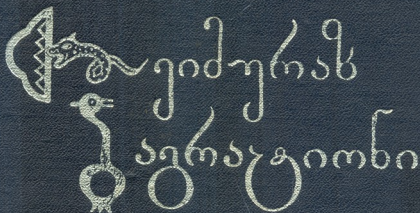 თეიმურაზ
ბაგრატიონი